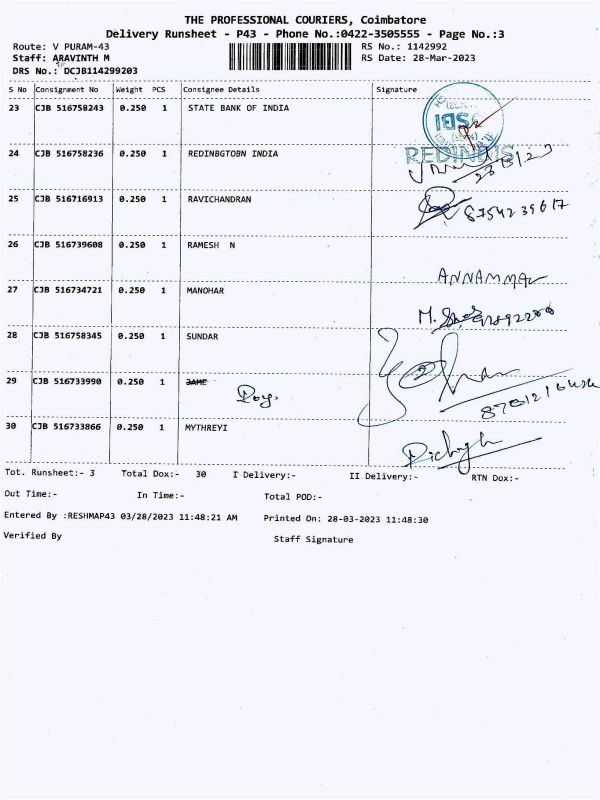 THE PROFESSIONAL COURIERS, Coimbatore
Delivery Runsheet - P43 - Phone No.:0422-3505555 - Page No.:3
Route: V PURAM-43 RS No.: 1142992
Staff: ARAVINTH M RS Date: 28-Mar-2023
DRS No.: DCJB114299203
S No Consignment No Weight PCS Consignee Details Signature
23 CJB 516758243 0.250 1 STATE BANK OF INDIA SBI
24 CJB 516758236 0.250 1 REDINBGTOBN INDIA
25 CJB 516716913 0.250 1 RAVICHANDRAN 8754239617
26 CJB 516739608 0.250 1 RAMESH N ANNAMMAL
27 CJB 516734721 0.250 1 MANOHAR M.
28 CJB 516758345 0.250 1 SUNDAR
29 CJB 516733990 0.250 1 JAME
30 CJB 516733866 0.250 1 MYTHREYI
Tot. Runsheet:- 3 Total Dox:- 30 I Delivery:- II Delivery:- RTN Dox:-
Out Time:- In Time:- Total POD:-
Entered By :RESHMAP43 03/28/2023 11:48:21 AM Printed On: 28-03-2023 11:48:30
Verified By Staff Signature